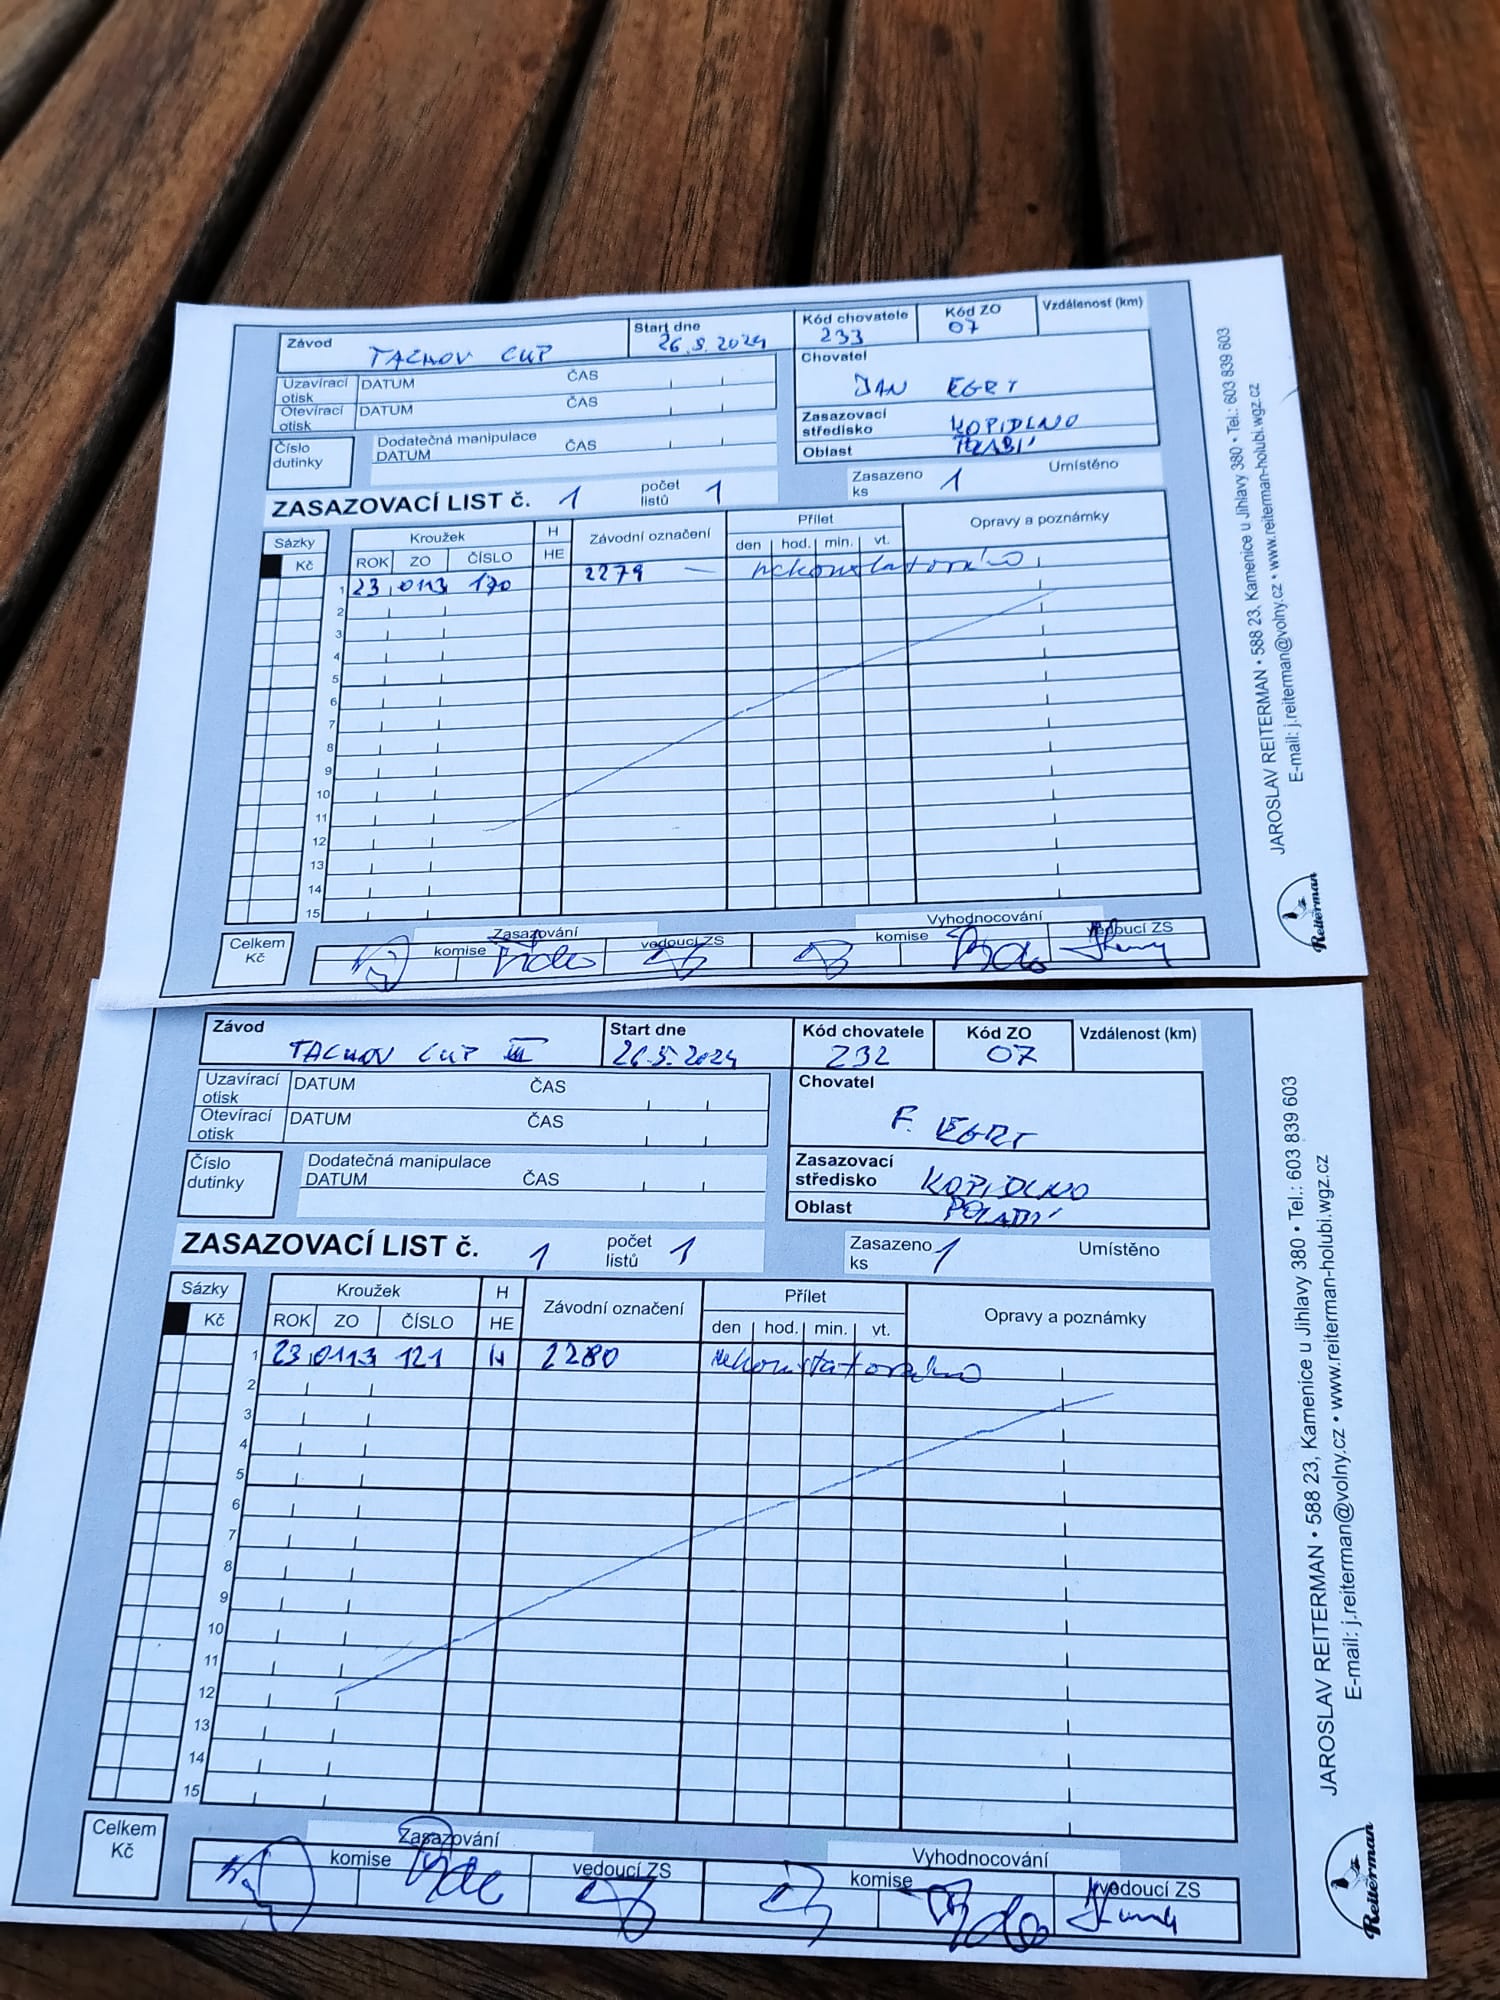 Závod TACHOV CUP
Start dne 26.5.2024
Kód chovatele 233
Kód ZO 07
Vzdálenost (km)
Uzavírací otisk DATUM ČAS
Otevírací otisk DATUM ČAS
Chovatel
JAN EGRT
Číslo dutinky
Dodatečná manipulace
DATUM ČAS
Zasazovací středisko KOPIDLNO
Oblast
ZASAZOVACÍ LIST č. 1
počet listů 1
Zasazeno ks 1
Umístěno
Sázky
Kč
Kroužek
ROK ZO ČÍSLO
H
HE
Závodní označení
Přílet
den hod. min. vt.
Opravy a poznámky
1 23 0113 170 2279 — nekonstatováno
2
3
4
5
6
7
8
9
10
11
12
13
14
15
Celkem Kč
Zasazování
komise vedoucí ZS
Vyhodnocování
komise vedoucí ZS
JAROSLAV REITERMAN • 588 23, Kamenice u Jihlavy 380 • Tel.: 603 839 603
E-mail: j.reiterman@volny.cz • www.reiterman-holubi.wgz.cz
Reiterman
Závod TACHOV CUP III
Start dne 26.5.2024
Kód chovatele 232
Kód ZO 07
Vzdálenost (km)
Uzavírací otisk DATUM ČAS
Otevírací otisk DATUM ČAS
Chovatel
F. EGRT
Číslo dutinky
Dodatečná manipulace
DATUM ČAS
Zasazovací středisko KOPIDLNO
Oblast POLABÍ
ZASAZOVACÍ LIST č. 1
počet listů 1
Zasazeno ks 1
Umístěno
Sázky
Kč
Kroužek
ROK ZO ČÍSLO
H
HE
Závodní označení
Přílet
den hod. min. vt.
Opravy a poznámky
1 23 0113 121 H 2280 nekonstatováno
2
3
4
5
6
7
8
9
10
11
12
13
14
15
Celkem Kč
Zasazování
komise vedoucí ZS
Vyhodnocování
komise vedoucí ZS
JAROSLAV REITERMAN • 588 23, Kamenice u Jihlavy 380 • Tel.: 603 839 603
E-mail: j.reiterman@volny.cz • www.reiterman-holubi.wgz.cz
Reiterman